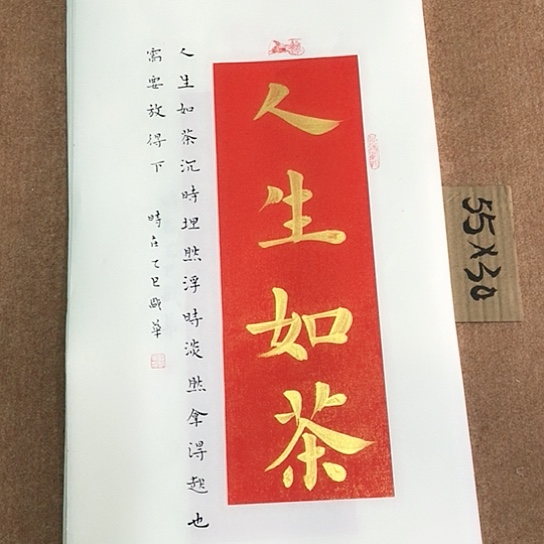 人生如茶
人生如茶沉時坦然浮時淡然拿得起也
需要放得下 時在乙巳
55×30